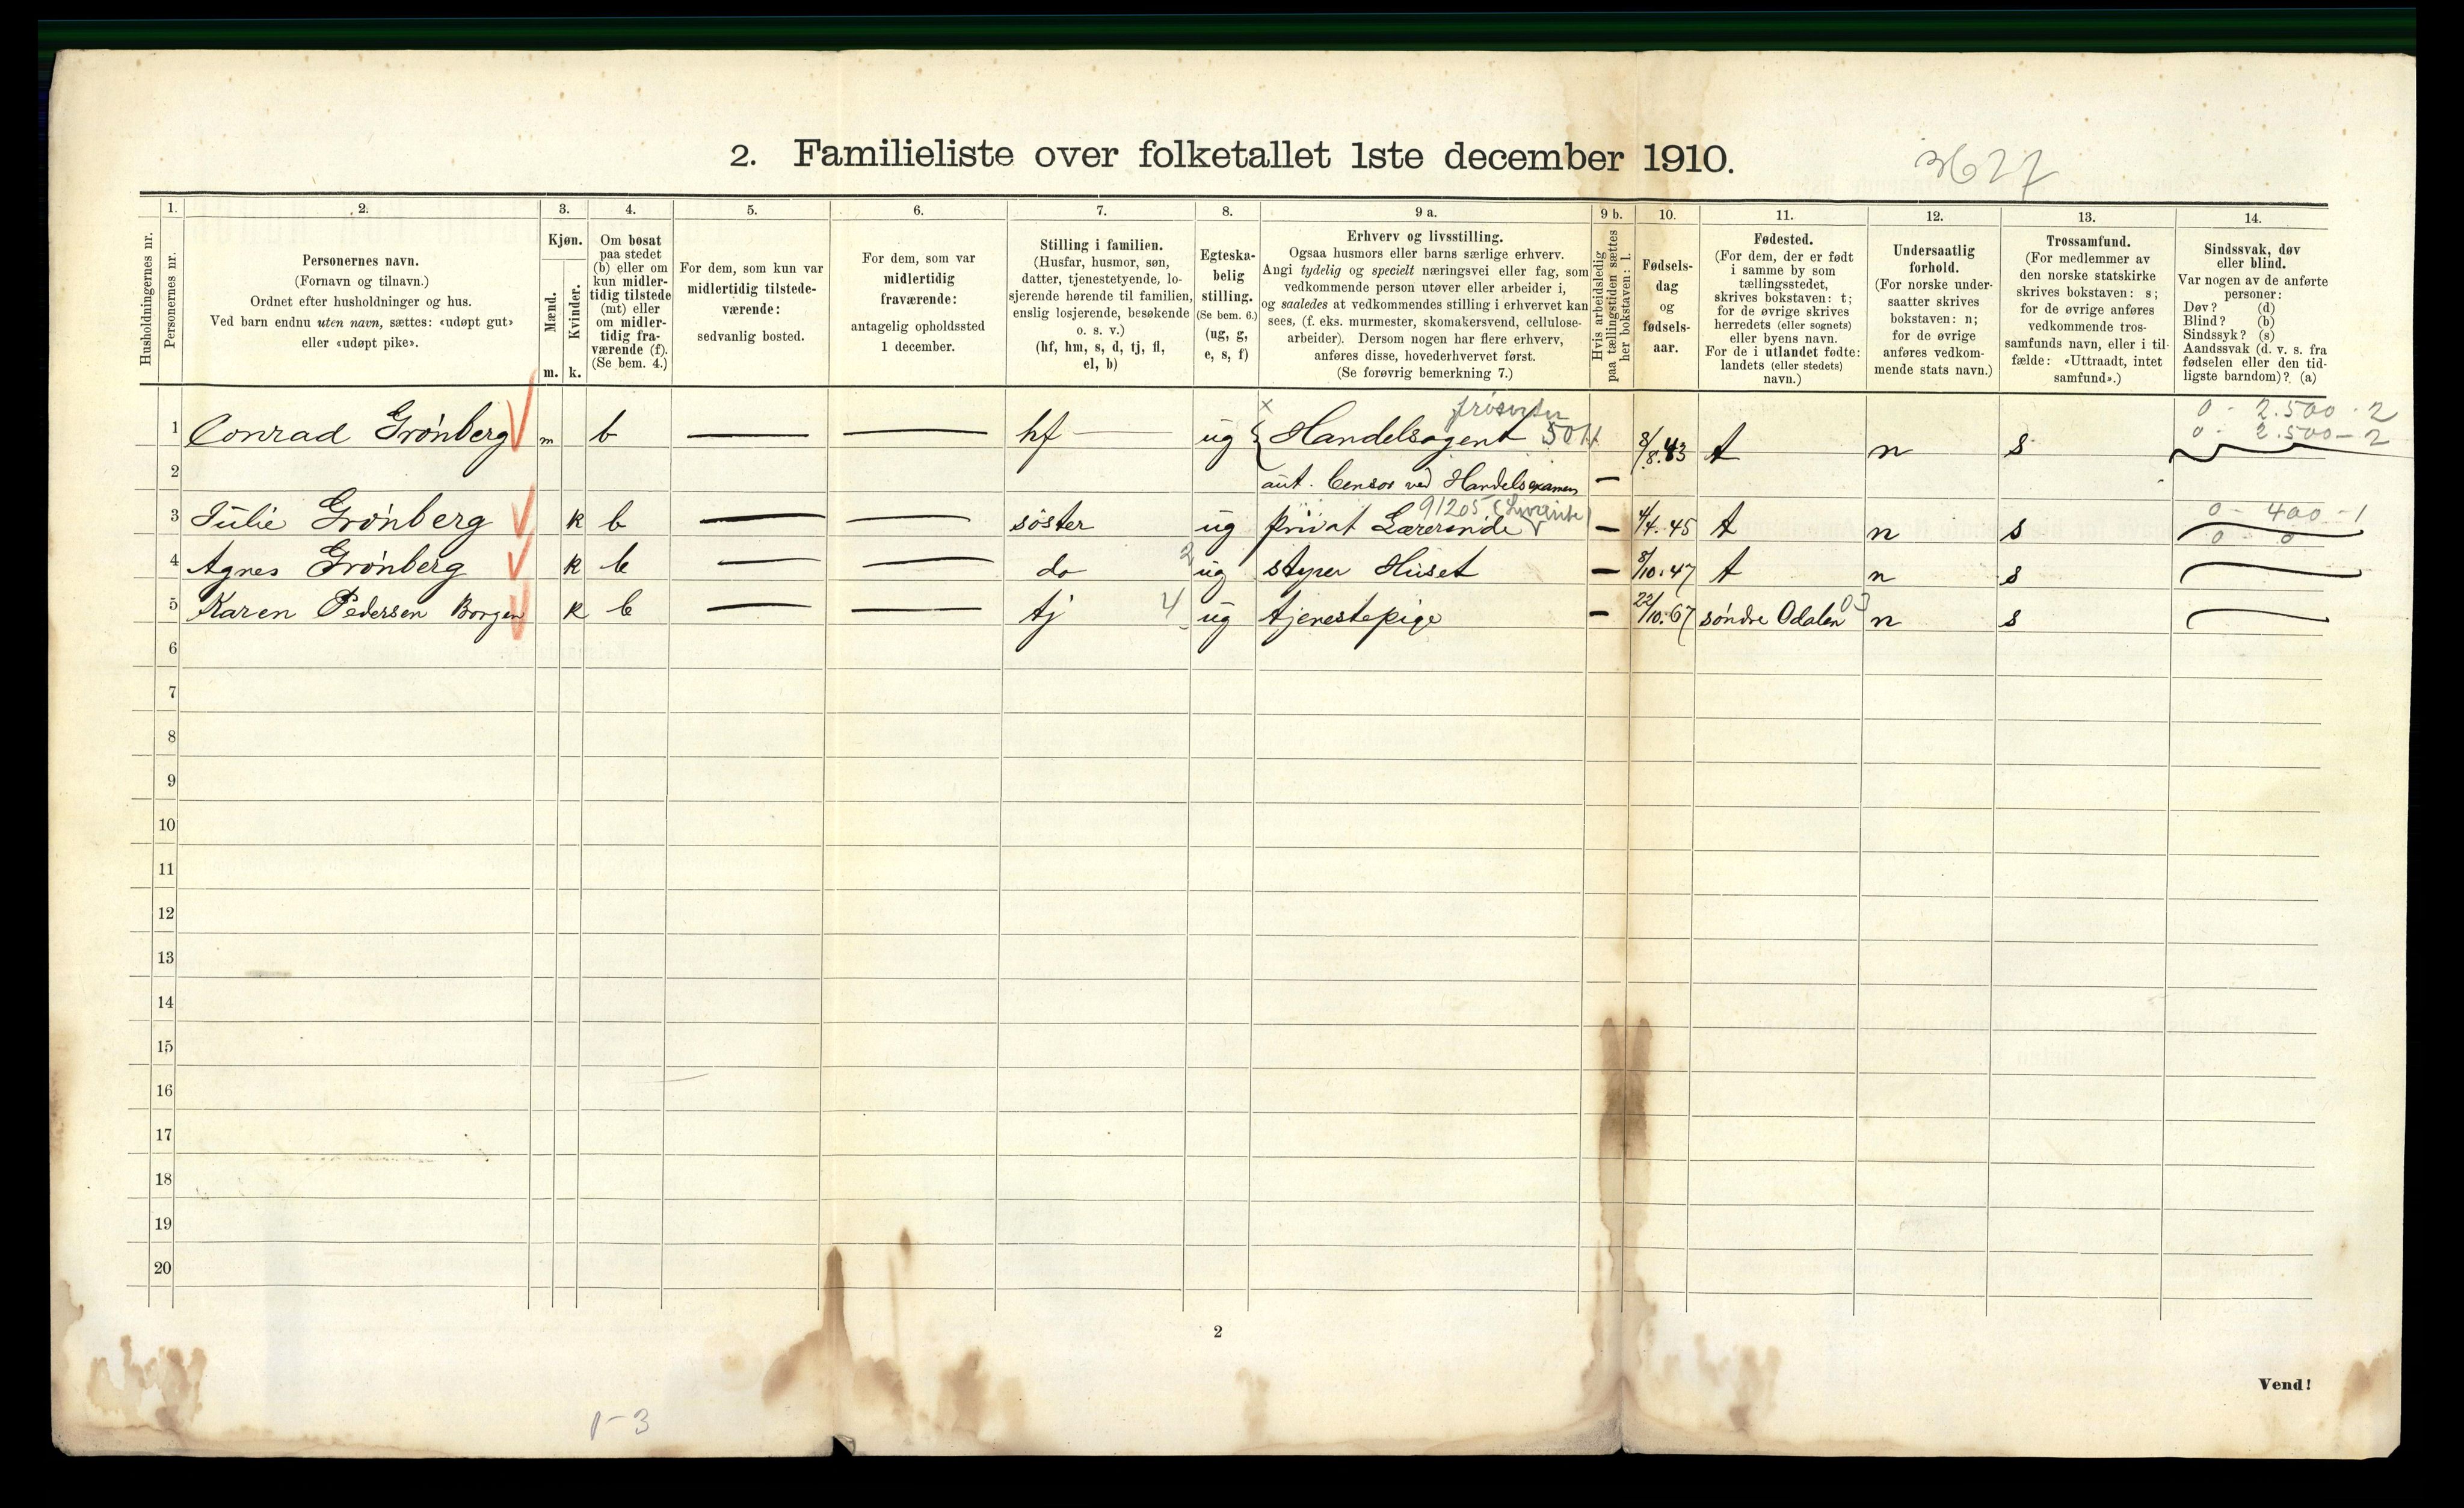 2. Familieliste over folketallet 1ste december 1910.
3627
1. 2. 3. 4. 5. 6. 7. 8. 9 a. 9 b. 10. 11. 12. 13. 14.
Husholdningernes nr.
Personernes nr.
Personernes navn.
(Fornavn og tilnavn.)
Ordnet efter husholdninger og hus.
Ved barn endnu uten navn, sættes: «udøpt gut»
eller «udøpt pike».
Kjøn.
Mænd.
m.
Kvinder.
k.
Om bosat
paa stedet
(b) eller om
kun midler-
tidig tilstede
(mt) eller
om midler-
tidig fra-
værende (f).
(Se bem. 4.)
For dem, som kun var
midlertidig tilstede-
værende:
sedvanlig bosted.
For dem, som var
midlertidig
fraværende:
antagelig opholdssted
1 december.
Stilling i familien.
(Husfar, husmor, søn,
datter, tjenestetyende, lo-
sjerende hørende til familien,
enslig losjerende, besøkende
o. s. v.)
(hf, hm, s, d, tj, fl,
el, b)
Egteska-
belig
stilling.
(Se bem. 6.)
(ug, g,
e, s, f)
Erhverv og livsstilling.
Ogsaa husmors eller barns særlige erhverv.
Angi tydelig og specielt næringsvei eller fag, som
vedkommende person utøver eller arbeider i,
og saaledes at vedkommendes stilling i erhvervet kan
sees, (f. eks. murmester, skomakersvend, cellulose-
arbeider). Dersom nogen har flere erhverv,
anføres disse, hovederhvervet først.
(Se forøvrig bemerkning 7.)
Hvis arbeidsledig
paa tællingstiden sættes
her bokstaven: l.
Fødsels-
dag
og
fødsels-
aar.
Fødested.
(For dem, der er født
i samme by som
tællingsstedet,
skrives bokstaven: t;
for de øvrige skrives
herredets (eller sognets)
eller byens navn.
For de i utlandet fødte:
landets (eller stedets)
navn.)
Undersaatlig
forhold.
(For norske under-
saatter skrives
bokstaven: n;
for de øvrige
anføres vedkom-
mende stats navn.)
Trossamfund.
(For medlemmer av
den norske statskirke
skrives bokstaven: s;
for de øvrige anføres
vedkommende tros-
samfunds navn, eller i til-
fælde: «Uttraadt, intet
samfund».)
Sindssvak, døv
eller blind.
Var nogen av de anførte
personer:
Døv? (d)
Blind? (b)
Sindssyk? (s)
Aandssvak (d. v. s. fra
fødselen eller den tid-
ligste barndom)? (a)
0 - 2.500 - 2
1 Conrad Grönberg m b — — hf — ug { Handelsagent 8/8.43 t n s 0 - 2.500 - 2
2 aut. Censor ved Handelsexamen —
91205 0 - 400 - 1
3 Julie Grönberg k b — — söster ug privat Lærerinde — 4/4.45 t n s
0 - 0
4 Agnes Grönberg k b — — do 2 ug styrer Huset — 8/10.47 t n s
5 Karen Pedersen Borgen k b — — tj 4 ug tjenestepige — 22/10.67 söndre Odalen 03 n s
6
7
8
9
10
11
12
13
14
15
16
17
18
19
20
2
Vend!
1-3